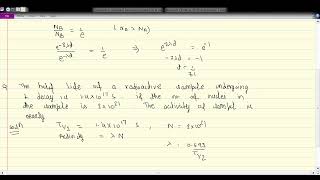 N_B/N_A = 1/e (N_A > N_B)
e^-8λt / e^-λt = 1/e ⇒ e^-7λt = e^-1
-7λt = -1
t = 1/7λ
Q. The half life of a radioactive sample undergoing
decay is 1.4×10^17 s. if the no of nuclei in
the sample is 2×10^21. The activity of sample is
nearly
T_1/2 = 1.4×10^17 s, N = 2×10^21
Activity = λN
λ = 0.693/T_1/2